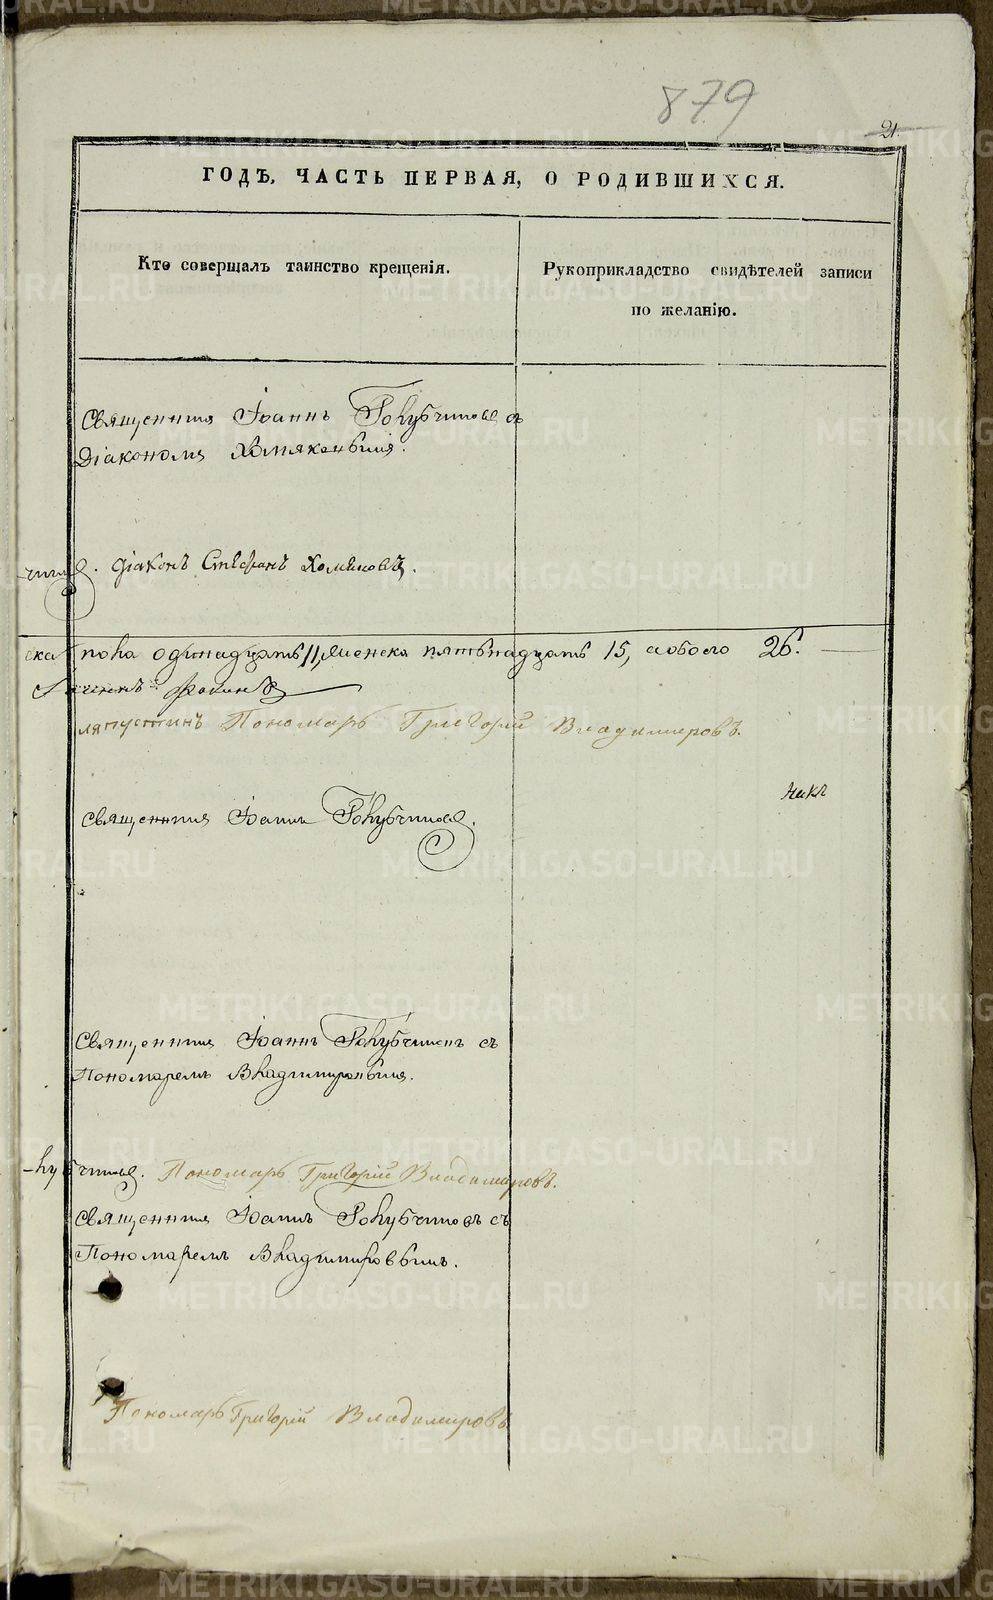 879
21.
ГОДЪ, ЧАСТЬ ПЕРВАЯ, О РОДИВШИХСЯ.
Кто совершалъ таинство крещенія.
Рукоприкладство свидѣтелей записи
по желанію.
Священникъ Іоаннъ Голубчиковъ съ
Діакономъ Хомяковымъ.
Діаконъ Стефанъ Хомяковъ.
пола одинадцать 11, женска пятьнадцать 15, а обоего 26.
Лапустинъ Пономарь Григорій Владимировъ.
Священникъ Іоаннъ Голубчиковъ.
Священникъ Іоаннъ Голубчиковъ съ
Пономаремъ Владимировымъ.
-лубчиковъ. Пономарь Григорій Владимировъ.
Священникъ Іоаннъ Голубчиковъ съ
Пономаремъ Владимировымъ.
Пономарь Григорій Владимировъ
METRIKI.GASO-URAL.RU